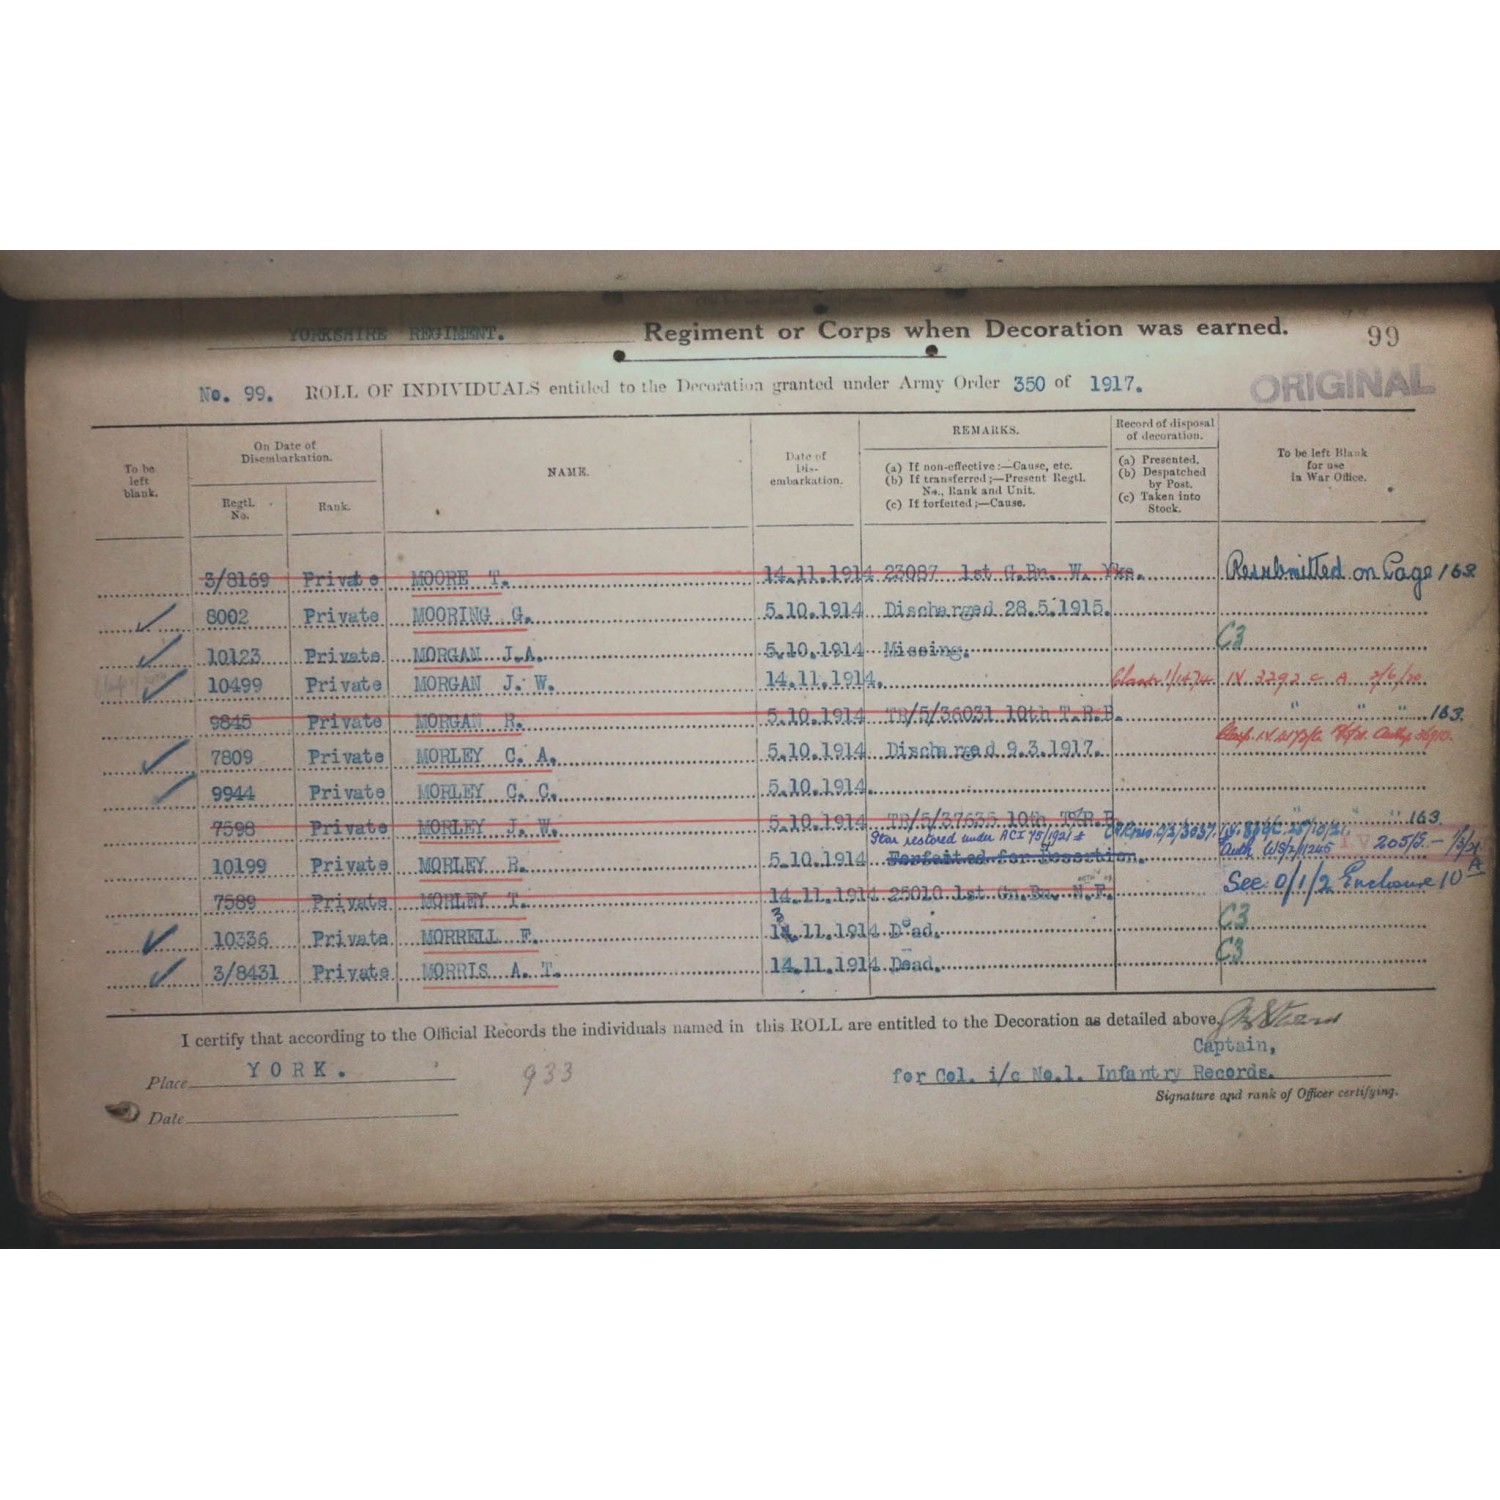 YORKSHIRE REGIMENT. Regiment or Corps when Decoration was earned. 99
No. 99. ROLL OF INDIVIDUALS entitled to the Decoration granted under Army Order 350 of 1917. ORIGINAL
To be left blank.
On Date of Disembarkation.
Regtl. No.
Rank.
NAME.
Date of Dis-embarkation.
REMARKS.
(a) If non-effective:—Cause, etc.
(b) If transferred;—Present Regtl. No., Rank and Unit.
(c) If forfeited;—Cause.
Record of disposal of decoration.
(a) Presented.
(b) Despatched by Post.
(c) Taken into Stock.
To be left Blank for use in War Office.
3/8169 Private MOORE T. 14.11.1914 23087 1st G.Bn. W. Yks. Resubmitted on Page 163
8002 Private MOORING G. 5.10.1914 Discharged 28.5.1915.
10123 Private MORGAN J.A. 5.10.1914 Missing. C3
10499 Private MORGAN J. W. 14.11.1914. IV 3292 C A 2/6/20
9845 Private MORGAN R. 5.10.1914 TR/5/36031 10th T.R.B. " " " 163.
7809 Private MORLEY C. A. 5.10.1914 Discharged 9.3.1917.
9944 Private MORLEY C. C. 5.10.1914.
7598 Private MORLEY J. W. 5.10.1914 TR/5/37635 10th T.R.B. " " " 163.
Star restored under ACI 45/1921
10199 Private MORLEY R. 5.10.1914 Forfeited for Desertion. Auth WS/2/1245 IV 205/S.
7589 Private MORLEY T. 14.11.1914 25010 1st Gn.Bn. N.F. See 0/1/2 Enclosure 10 A
10336 Private MORRELL F. 11.1914 Dead. C3
3/8431 Private MORRIS A. T. 14.11.1914 Dead. C3
I certify that according to the Official Records the individuals named in this ROLL are entitled to the Decoration as detailed above.
Captain,
Place YORK. 933 for Col. i/c No.1. Infantry Records.
Signature and rank of Officer certifying.
Date